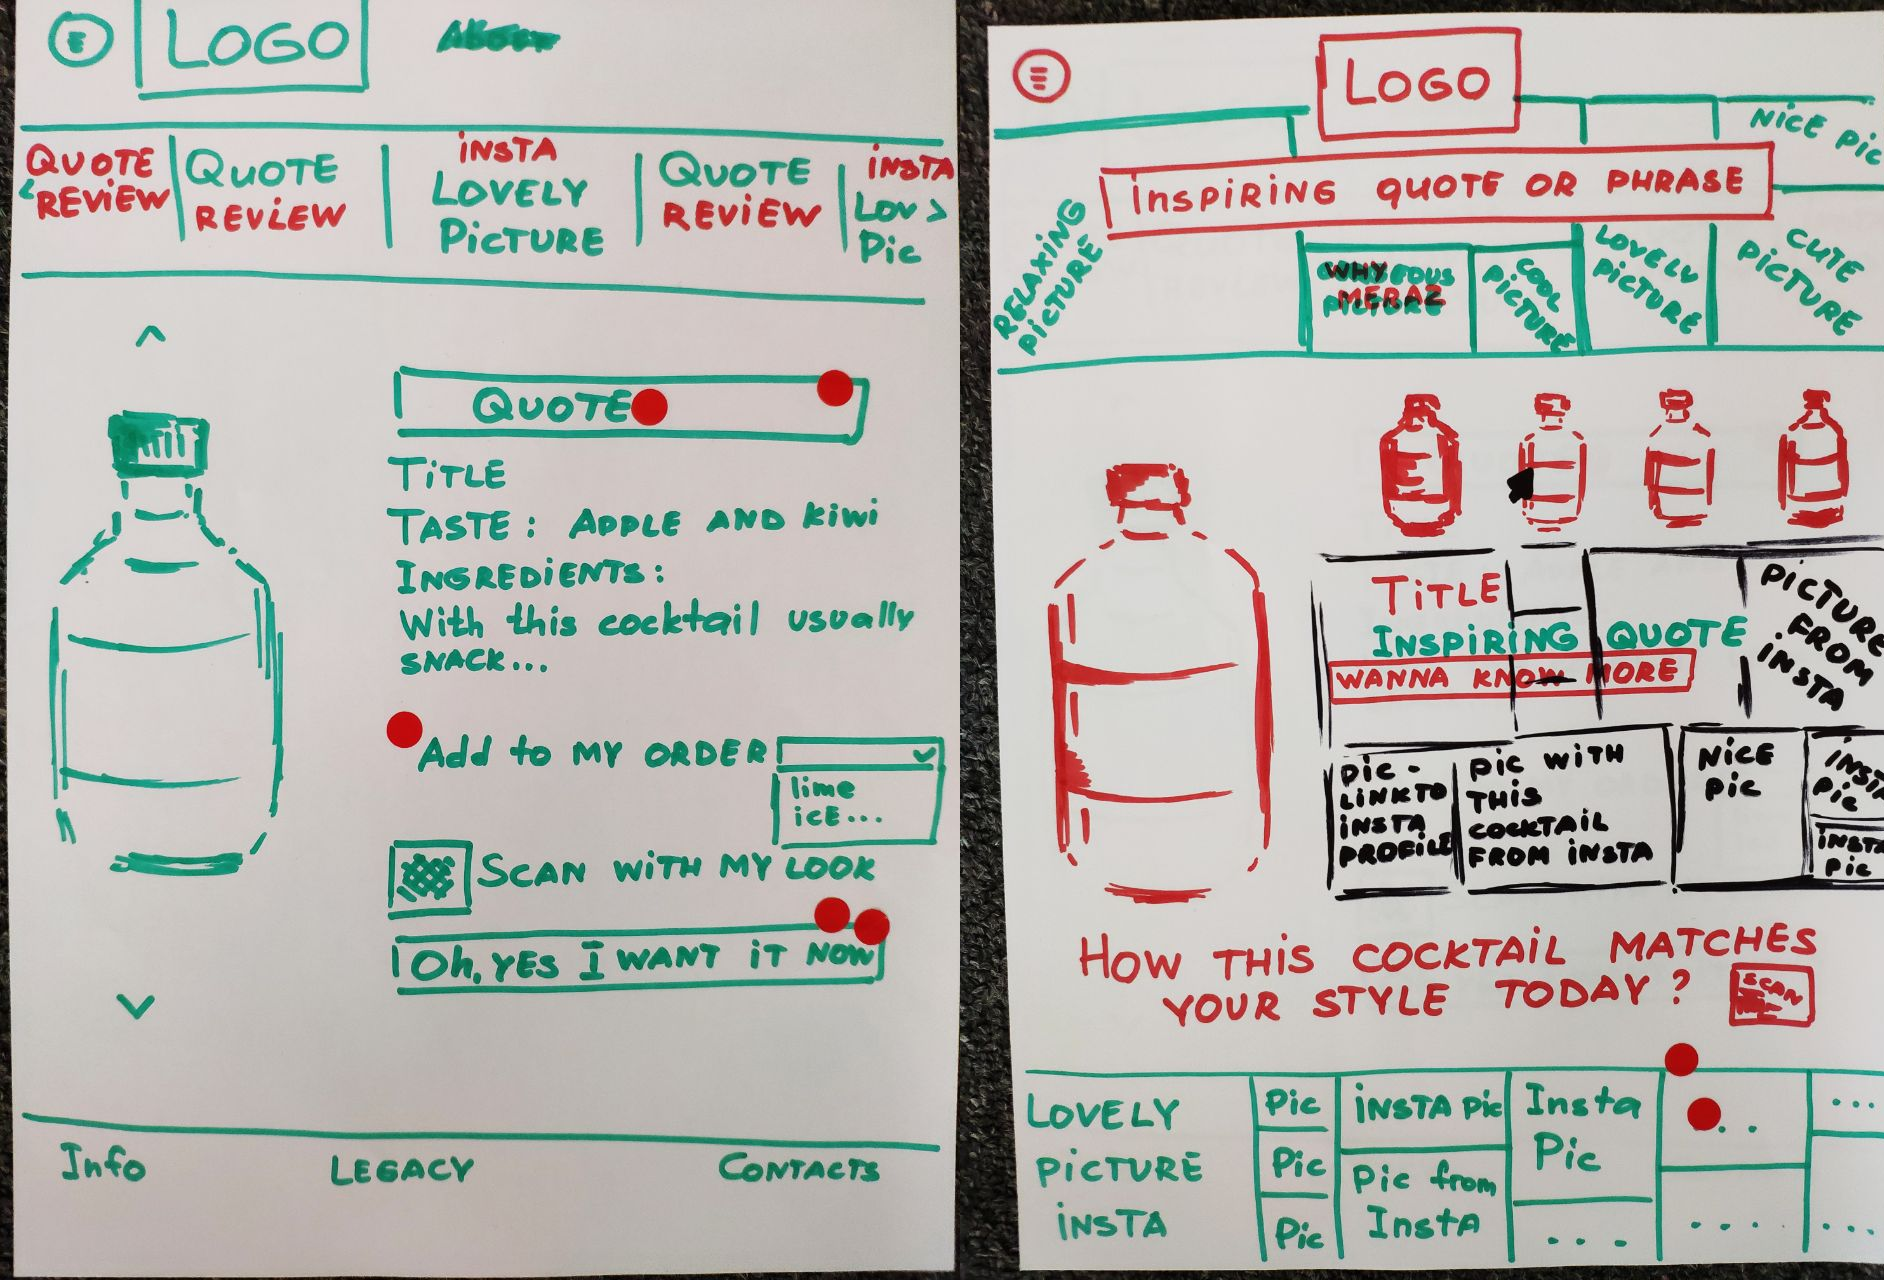 LOGO
QUOTE
& REVIEW
QUOTE
REVIEW
INSTA
LOVELY
PICTURE
QUOTE
REVIEW
INSTA
LOV >
Pic
QUOTE
TITLE
TASTE: APPLE AND KIWI
INGREDIENTS:
With this cocktail usually
SNACK...
Add to MY ORDER
lime
ICE...
SCAN WITH MY LOOK
Oh, YES I WANT IT NOW
Info
LEGACY
CONTACTS
LOGO
NICE PIC
INSPIRING QUOTE OR PHRASE
RELAXING
PICTURE
WHY
MERAZ
COOL
PICTURE
LOVELY
PICTURE
CUTE
PICTURE
TITLE
INSPIRING QUOTE
WANNA KNOW MORE
PICTURE
FROM
INSTA
PIC -
LINK TO
INSTA
PROFILE
PIC WITH
THIS
COCKTAIL
FROM INSTA
NICE
PIC
INSTA
PIC
INSTA
PIC
HOW THIS COCKTAIL MATCHES
YOUR STYLE TODAY?
SCAN
LOVELY
PICTURE
INSTA
Pic
Pic
Pic
INSTA PIC
Pic from
Insta
Insta
Pic
...
. .
....
...
...